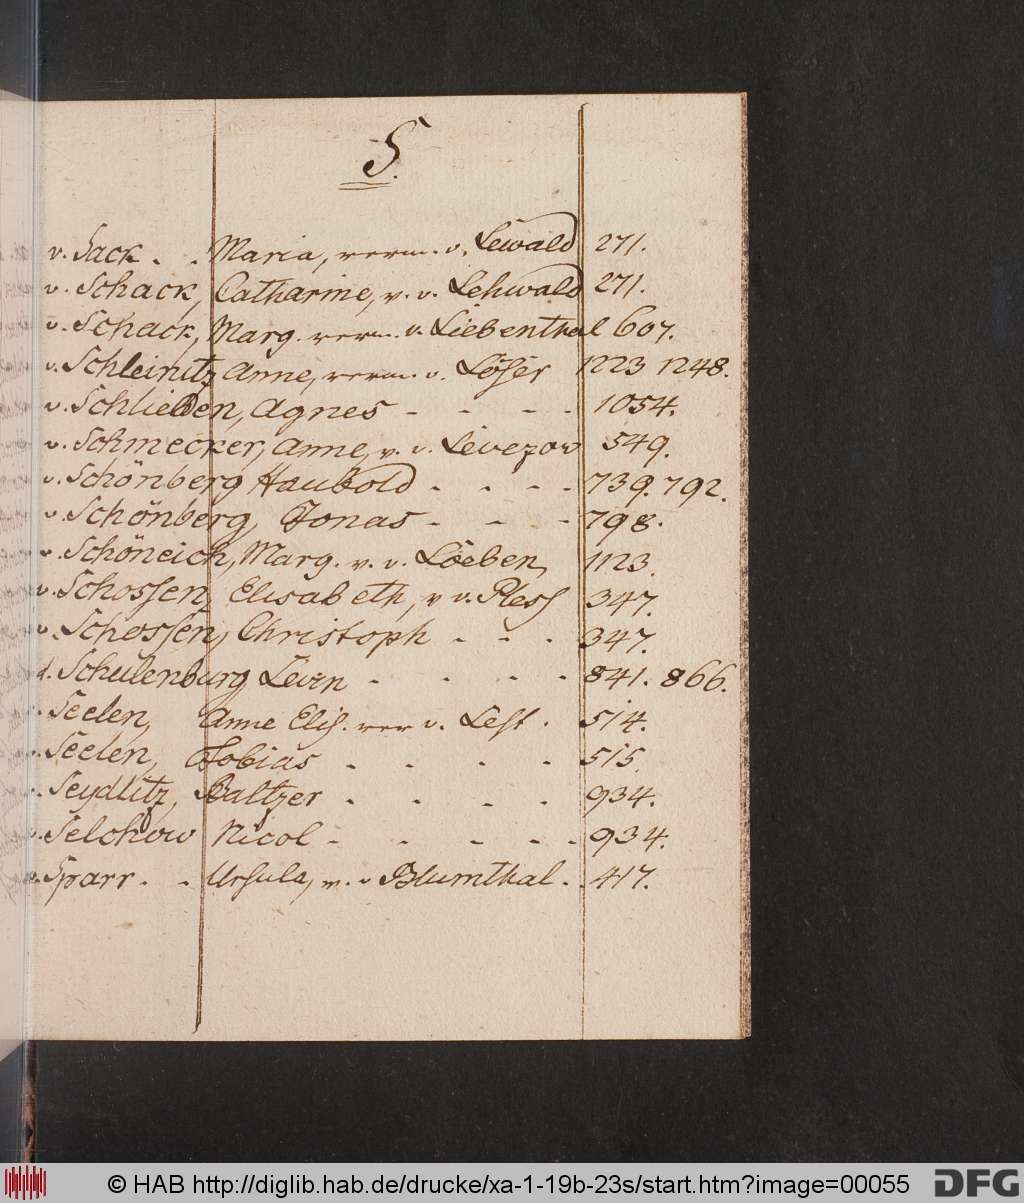 S.
v. Sack . . Maria, verm. v. Lewald 271.
v. Schack, Catharine, v. v. Lehwald 271.
v. Schack, Marg. verm. v. Liebenthal 607.
v. Schleinitz Anne, verm. v. Löser 1223 1248.
v. Schlieben, Agnes - - - - 1054.
v. Schmecker, Anne, v. v. Levezow 549.
v. Schönberg Haubold . - - - 739. 792.
v. Schönberg, Jonas - - - - 798.
v. Schöneich, Marg. v. v. Löeben, 1123.
v. Schossen, Elisabeth, v v. Pless 347.
v. Schossen, Christoph - - . 347.
d. Schulenburg Levin - - - - 841. 866.
Seelen, Anne Elis. ver v. Lest . 514.
Seelen, Tobias - - - - 515.
Seydlitz, Baltzer . . . . 934.
Selchow Nicol - - - - - 934.
Sparr . . Ursula, v. v Blumthal . 417.
© HAB http://diglib.hab.de/drucke/xa-1-19b-23s/start.htm?image=00055
DFG